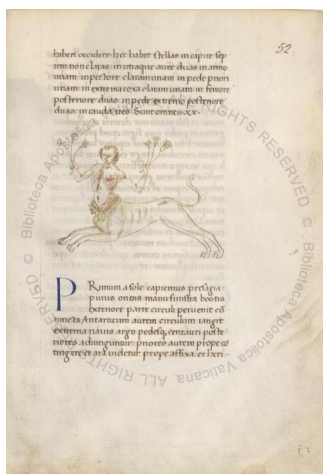 52.
haberi occidere. hec habet stellas in capite sep
tem non claras. in utraque aure duas in armo
unam. in pectore claram unam in pede priori
unam. in extrema coxa claram unam. in femore
posteriore duas. in pede extremo posteriore
duas. in cauda tres. Sunt omnes xx.
PRimum a sole capiemus presagia
purus oriens
manu sinistra bootio
exteriore parte circuli peruenit
Antarticum autem circulum tangit
extrema nauis argo pedesq; centauri poste
riores adiunguntur. priores autem prope
tingere et ara uidetur prope affixa
© Biblioteca Apostolica Vaticana ALL RIGHTS RESERVED
© Biblioteca Apostolica Vaticana ALL RIGHTS RESERVED